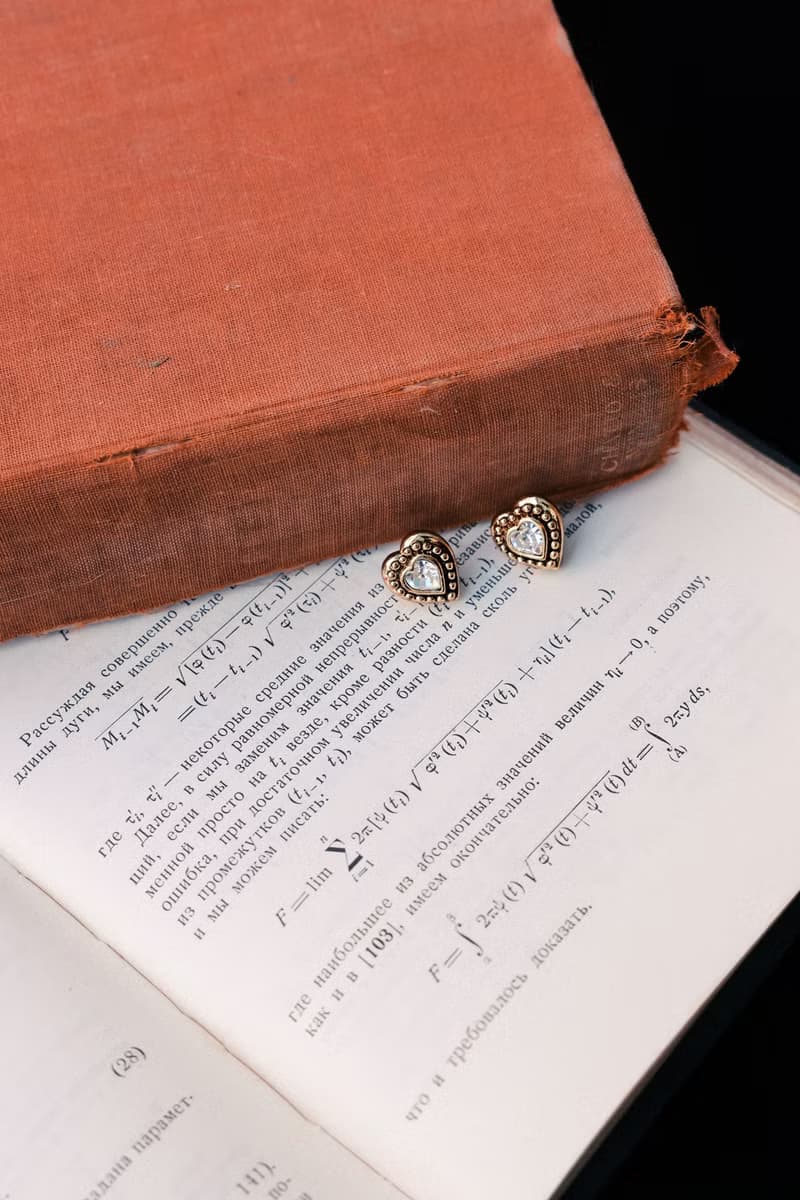 CHATTO &
Рассуждая совершенно
длины дуги, мы имеем, прежде
M_{i−1}M_i = √[φ(t_i) − φ(t_{i−1})]² +
= (t_i − t_{i−1}) √φ'²(τ'_i) + ψ'²
где τ'_i, τ''_i — некоторые средние значения из
Далее, в силу равномерной непрерывност
ций, если мы заменим значения t_{i−1}, τ'_i
менной просто на t_i везде, кроме разности (t_i − t_{i−1}),
ошибка, при достаточном увеличении числа n и уменьше
из промежутков (t_{i−1}, t_i), может быть сделана сколь малой,
и мы можем писать:
F = lim ∑_{i=1}^{n} 2π [ψ(t_i) √φ'²(t_i) + ψ'²(t_i) + η_i] (t_i − t_{i−1}),
где наибольшее из абсолютных значений величин η_i → 0, а поэтому,
как и в [103], имеем окончательно:
F = ∫_α^β 2πψ(t) √φ'²(t) + ψ'²(t) dt = ∫_{(A)}^{(B)} 2πy ds,
что и требовалось доказать.
(28)
адана парамет.
141).
по-